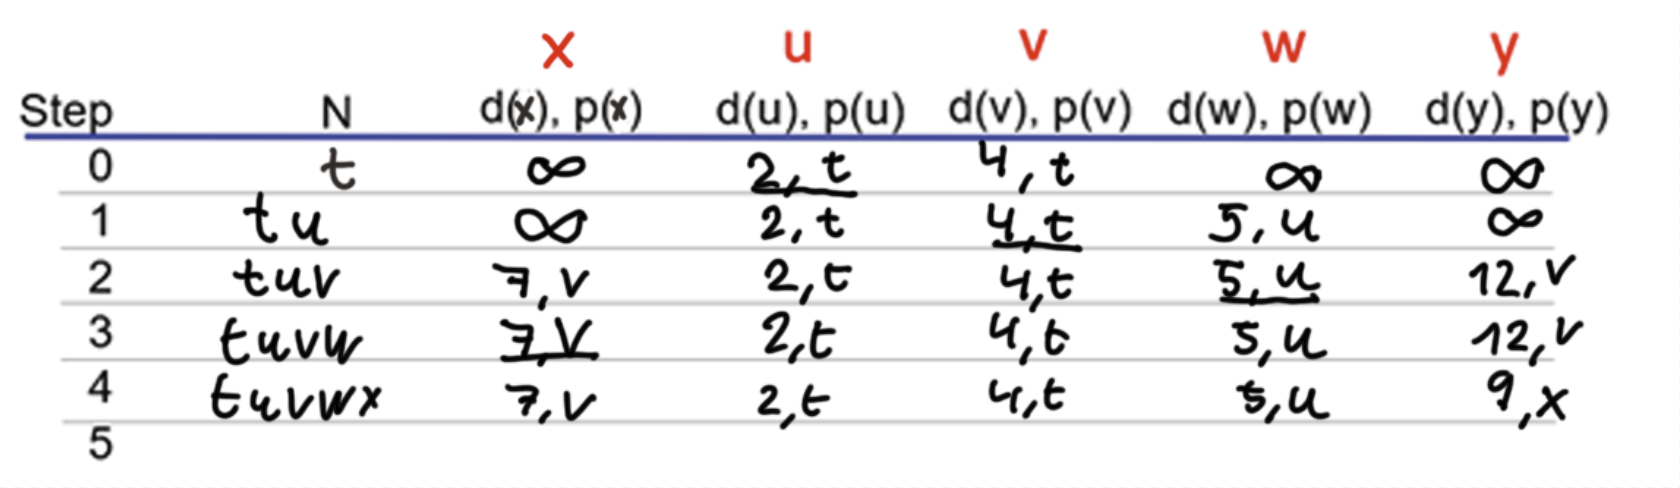 x u v w y
Step N d(x), p(x) d(u), p(u) d(v), p(v) d(w), p(w) d(y), p(y)
0 t ∞ 2, t 4, t ∞ ∞
1 tu ∞ 2, t 4, t 5, u ∞
2 tuv 7, v 2, t 4, t 5, u 12, v
3 tuvw 7, v 2, t 4, t 5, u 12, v
4 tuvwx 7, v 2, t 4, t 5, u 9, x
5